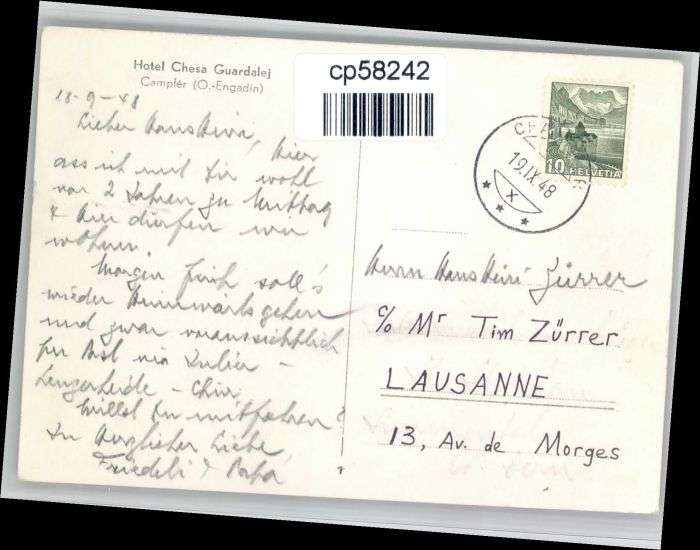 Hotel Chesa Guardalej
Campfèr (O.-Engadin)
cp58242
18-9-48
Lieber Hansheiri, Hier
ass ich mit Dir wohl
vor 2 Jahren zu Mittag
& hier dürfen wir
wohnen.
Morgen früh soll's
wieder heimwärts gehen
und zwar voraussichtlich
per Post via Julier -
Lenzerheide - Chur.
Willst Du mitfahren?
In herzlicher Liebe,
Friedeli & Papa
19.IX.48
X
10 HELVETIA
Herrn Hansheiri Zürrer
c/o Mr Tim Zürrer
LAUSANNE
13, Av. de Morges